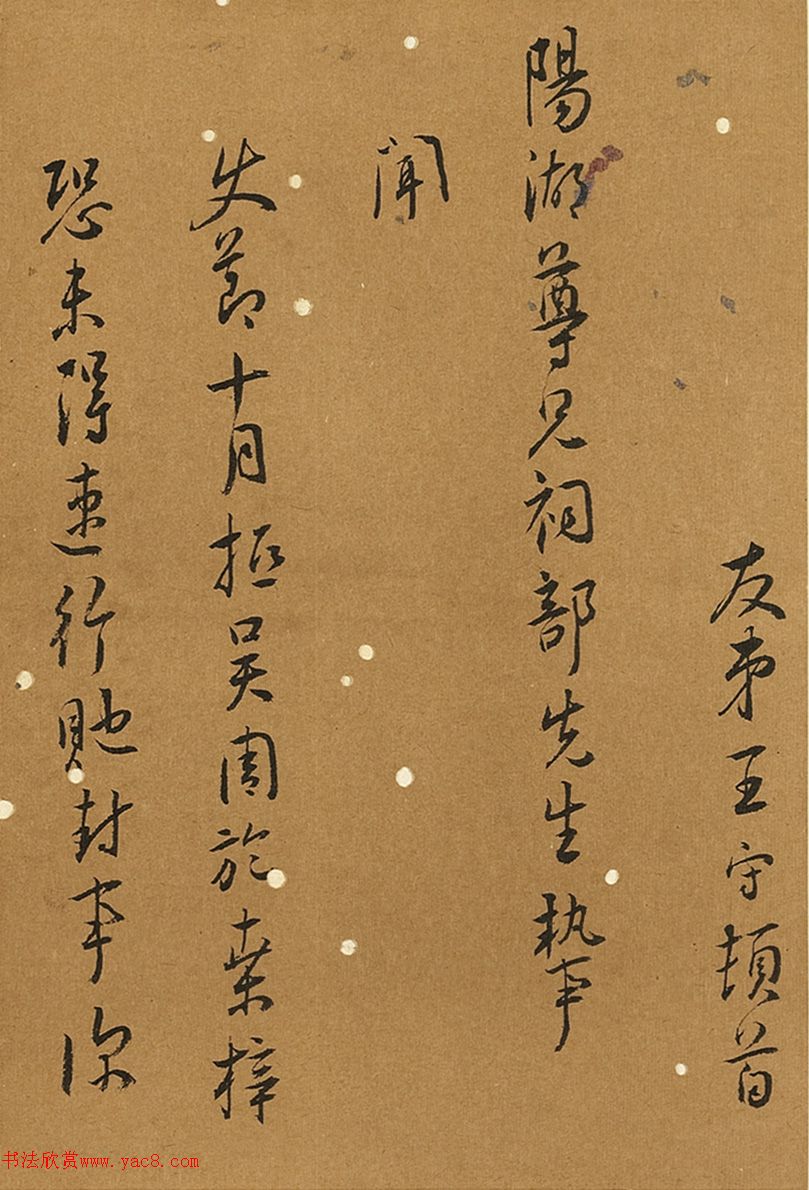 友弟王守頓首
陽湖尊兄祠部先生執事
聞
節十月抵吴於桑梓
恐未得速行貤封事深
书法欣赏www.yac8.com